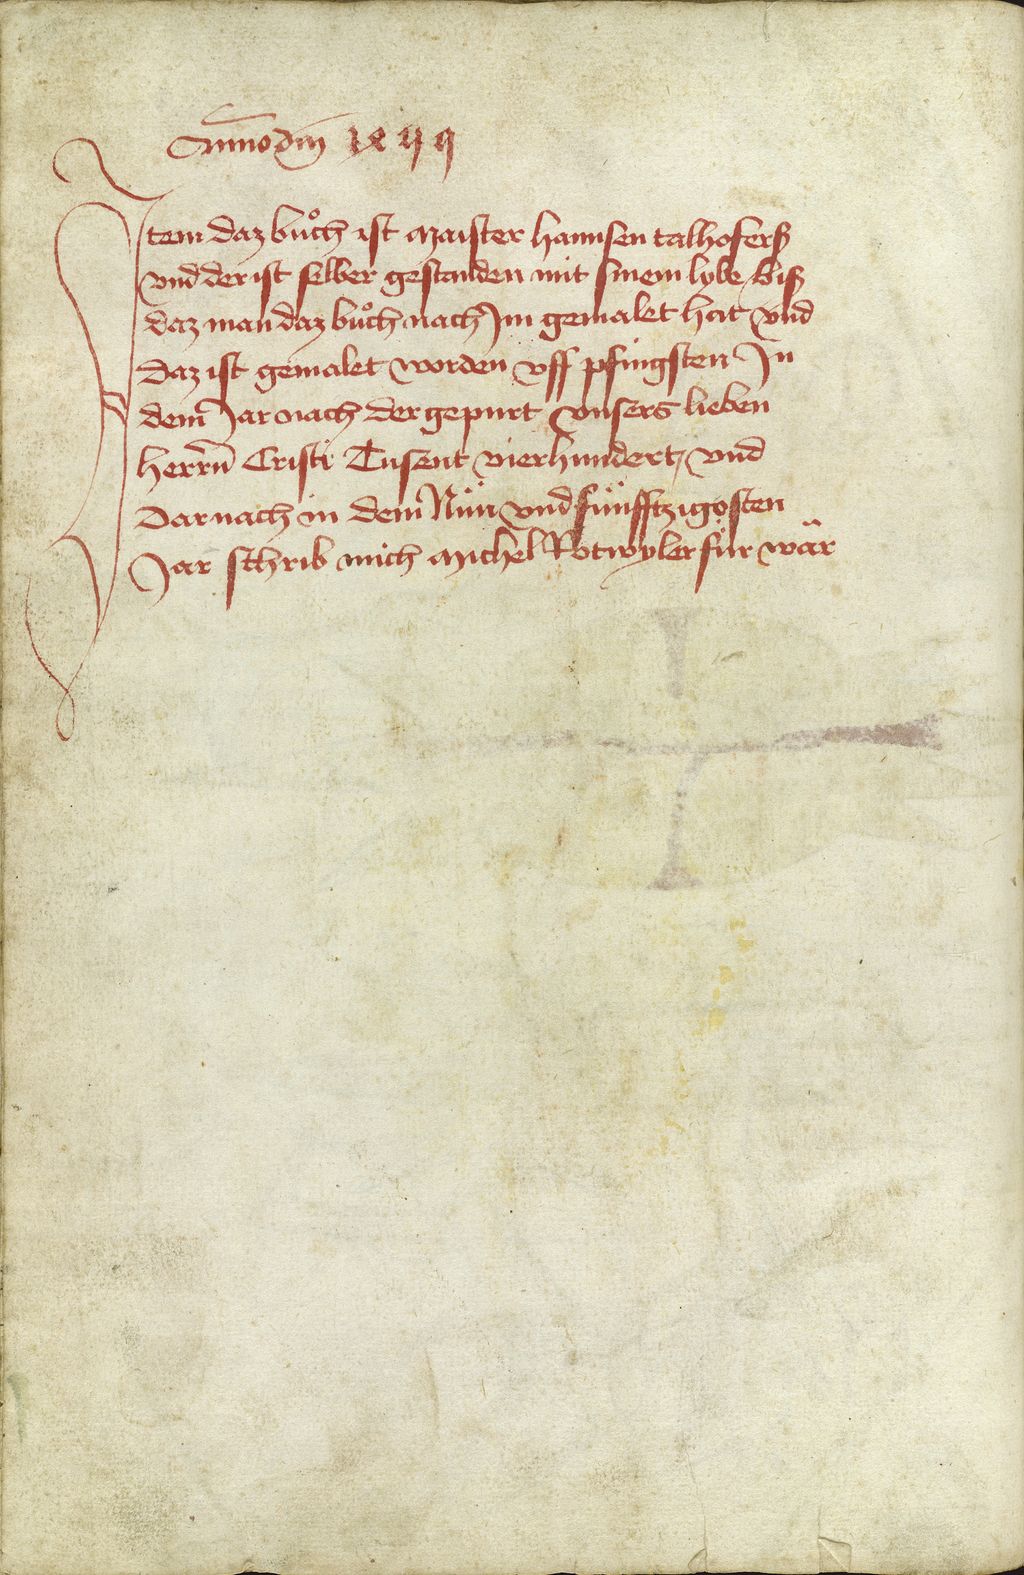 Anno dm̄
Item daz bůch ist maister hannsen talhoferß
vnd der ist selber gestanden mit sinem lybe biß
daz man daz bůch nach Im gemalet hat vnd
daz ist gemalet worden vff pfingsten In
dem Jar nach der gepurt vnsers lieben
herrn̄ Cristi Tusent vierhundert vnd
Darnach in dem Nün vnd fünfftzigosten
Jar schrib mich Michel Rotwyler für wär